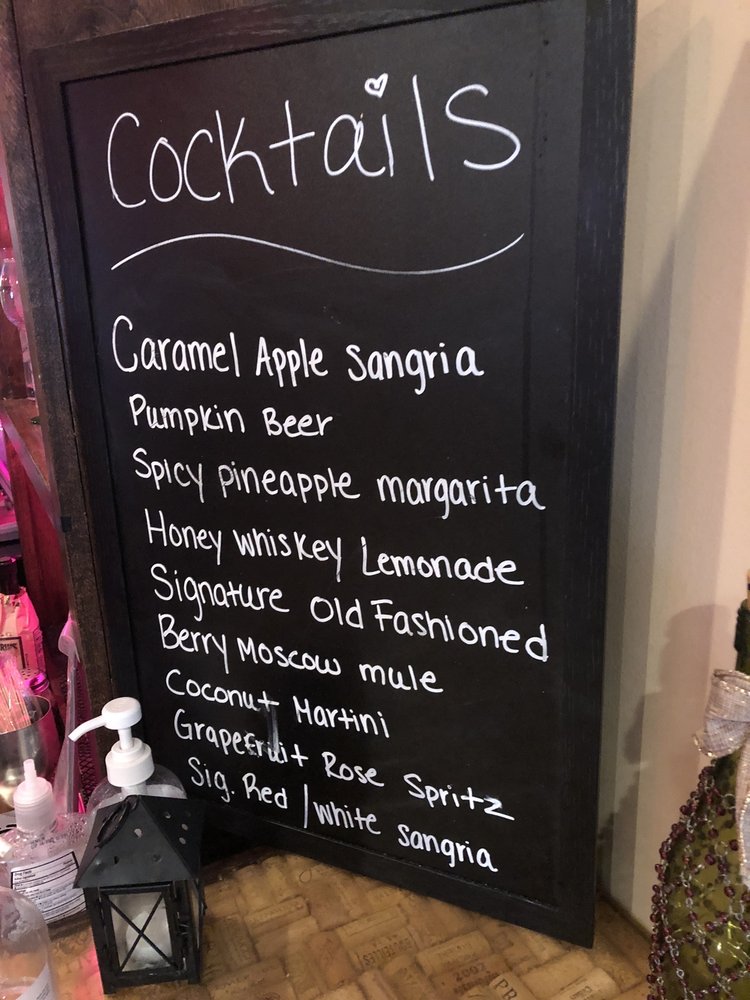 Cocktails
Caramel Apple Sangria
Pumpkin Beer
Spicy pineapple margarita
Honey whiskey Lemonade
Signature Old Fashioned
Berry Moscow mule
Coconut Martini
Grapefruit Rose Spritz
Sig. Red / white sangria